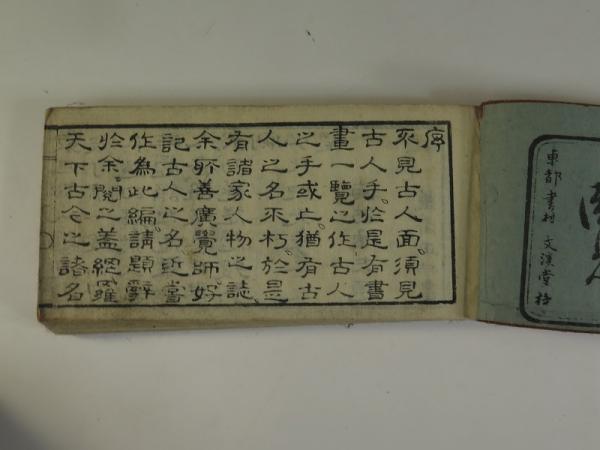 東都書林 文溪堂梓
序
不見古人面須見
古人手於是有書
畫一覽之作古人
之手或亡猶有古
人之名不朽於是
有諸家人物之誌
余所善廣覽師好
記古人之名近嘗
作為此編請題辭
於余閱之蓋網羅
天下古今之諸名